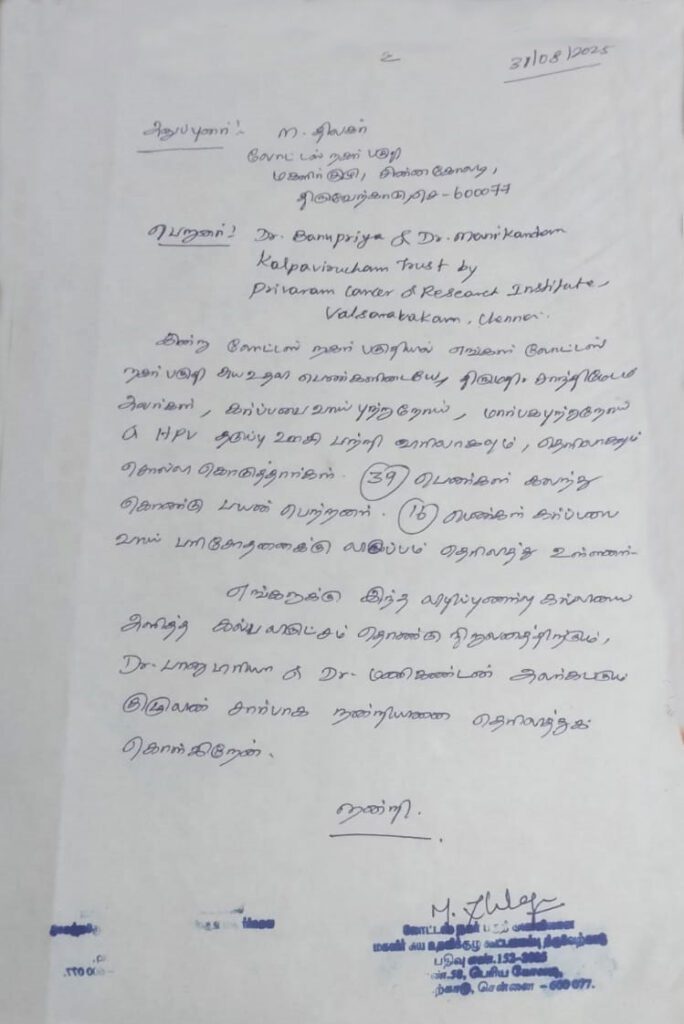 உ
31/08/2025
அனுப்புனர்:
M. திலகர்
லோட்டஸ் நகர் பகுதி
மகளிர் குழு, சின்ன கோலடி,
திருவேற்காடு, செ - 600077
பெறுனர்: Dr. Banupriya & Dr. Manikandan
Kalpavirucham Trust by
Privaram Cancer & Research Institute,
Valsaravakam, Chennai.
இன்று லோட்டஸ் நகர் பகுதியில் எங்கள் லோட்டஸ்
நகர் பகுதி சுய உதவி பெண்களிடையே, திருமதி. சாந்தி மேடம்
அவர்கள், கர்ப்பபை வாய் புற்றுநோய், மார்பக புற்றுநோய்
& HPV தடுப்பு ஊசி பற்றி விரிவாகவும், தெளிவாகவும்
சொல்லி கொடுத்தார்கள். 39 பெண்கள் கலந்து
கொண்டு பயன் பெற்றனர். 16 பெண்கள் கர்ப்பபை
வாய் பரிசோதனைக்கு விருப்பம் தெரிவித்து உள்ளனர்.
எங்களுக்கு இந்த விழிப்புணர்வு கல்வியை
அளித்த கல்ப விருட்சம் தொண்டு நிறுவனத்திற்கும்,
Dr. பானுபிரியா & Dr. மணிகண்டன் அவர்களுக்கும்
குழுவின் சார்பாக நன்றியினை தெரிவித்துக்
கொள்கிறேன்.
நன்றி.
லோட்டஸ் நகர் பகுதி
மகளிர் சுய உதவிக்குழு கூட்டமைப்பு திருவேற்காடு
பதிவு எண்.152-2025
எண்.58, பெரிய கோலடி,
ற்காடு, சென்னை - 600 077.
- 600 077.